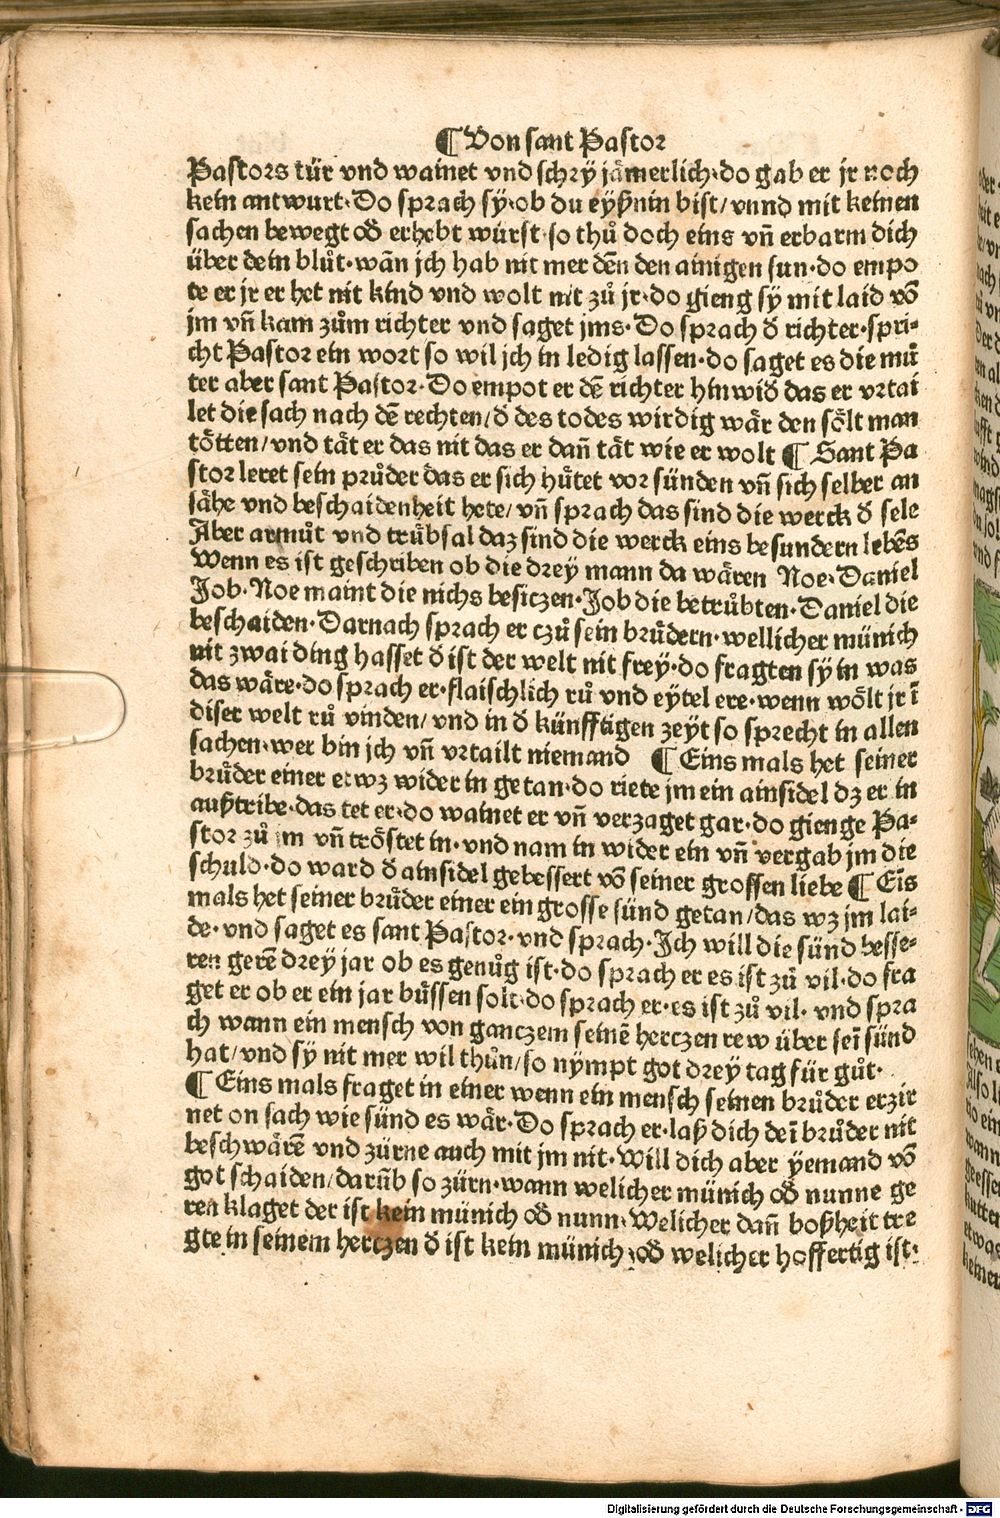 ¶ Von sant Pastor
Pastors tür vnd wainet vnd schry jämerlich·do gab er jr noch
kein antwurt·Do sprach sy·ob du eyßnin bist/vnnd mit keinen
sachen bewegt oð erhebt würst·so thů doch eins vn̄ erbarm dich
über dein blůt·wān jch hab nit mer dēn den ainigen sun·do empo
te er jr er het nit kind vnd wolt nit zů jr·do gieng sy mit laid vō
jm vn̄ kam zům richter vnd saget jms·Do sprach ð richter·spri-
cht Pastor ein wort so wil jch in ledig lassen·do saget es die mů
ter aber sant Pastor·Do empot er dē richter hinwið das er vrtai
let die sach nach dē rechten/ð des todes wirdig wär den sölt man
tötten/vnd tät er das nit das er dan̄ tät wie er wolt ¶ Sant Pa
stor leret sein průder das er sich hůtet vor sünden vn̄ sich selber an
sähe vnd beschaidenheit hete/vn̄ sprach das sind die werck ð sele
Aber armůt vnd trůbsal daz sind die werck eins besundern lebēs
Wenn es ist geschriben ob die drey mann da wären Noe·Daniel
Job·Noe maint die nichs besiczen·Job die betrůbten·Daniel die
beschaiden·Darnach sprach er czů sein brůdern·wellicher münich
nit zwai ding hasset ð ist der welt nit frey·do fragten sy in was
das wäre·do sprach er·flaischlich rů vnd eytel ere·wenn wölt jr ī
diser welt rů vinden/vnd in ð künfftigen zeyt so sprecht in allen
sachen·wer bin jch vn̄ vrtailt niemand ¶ Eins mals het seiner
brůder einer etwz wider in getan·do riete jm ein ainsidel dz er in
außtribe·das tet er·do wainet er vn̄ verzaget gar·do gienge Pa-
stor zů jm vn̄ tröstet in·vnd nam in wider ein vn̄ vergab jm die
schuld·do ward ð ainsidel gebessert vō seiner grossen liebe ¶ Eīs
mals het seiner brůder einer ein grosse sünd getan/das wz jm lai-
de·vnd saget es sant Pastor·vnd sprach·Ich will die sünd besse-
ren gerē drey jar ob es genůg ist·do sprach er es ist zů vil·do fra
get er ob er ein jar bůssen solt·do sprach er·es ist zů vil·vnd spra
ch wann ein mensch von ganczem seinē herczen rew über seī sünd
hat/vnd sy nit mer wil thůn/so nympt got drey tag für gůt·
¶ Eins mals fraget in einer wenn ein mensch seinen brůder erzir
net on sach wie sünd es wär·Do sprach er·laß dich deī brůder nit
beschwärē vnd zürne auch mit jm nit·Will dich aber yemand vō
got schaiden/darūb so zürn·wann welicher münich oð nunne ge
ren klaget der ist kein münich oð nunn·Welicher dan̄ boßheit tre
gte in seinem herczen ð ist kein münich·oð welicher hoffertig ist·
Digitalisierung gefördert durch die Deutsche Forschungsgemeinschaft - DFG